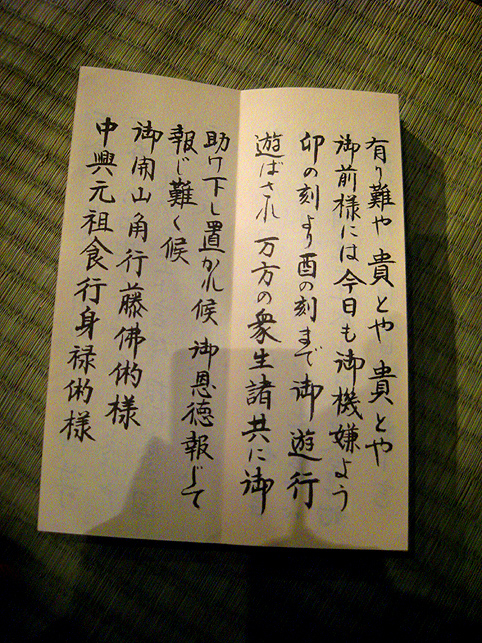 有り難や 貴とや 貴とや
御前様には 今日も御機嫌よう
卯の刻より酉の刻まで 御遊行
遊ばされ 万方の衆生諸共に御
助け下し置かれ候 御恩徳報じて
報じ難く候
御開山角行藤佛㑅様
中興元祖食行身禄㑅様